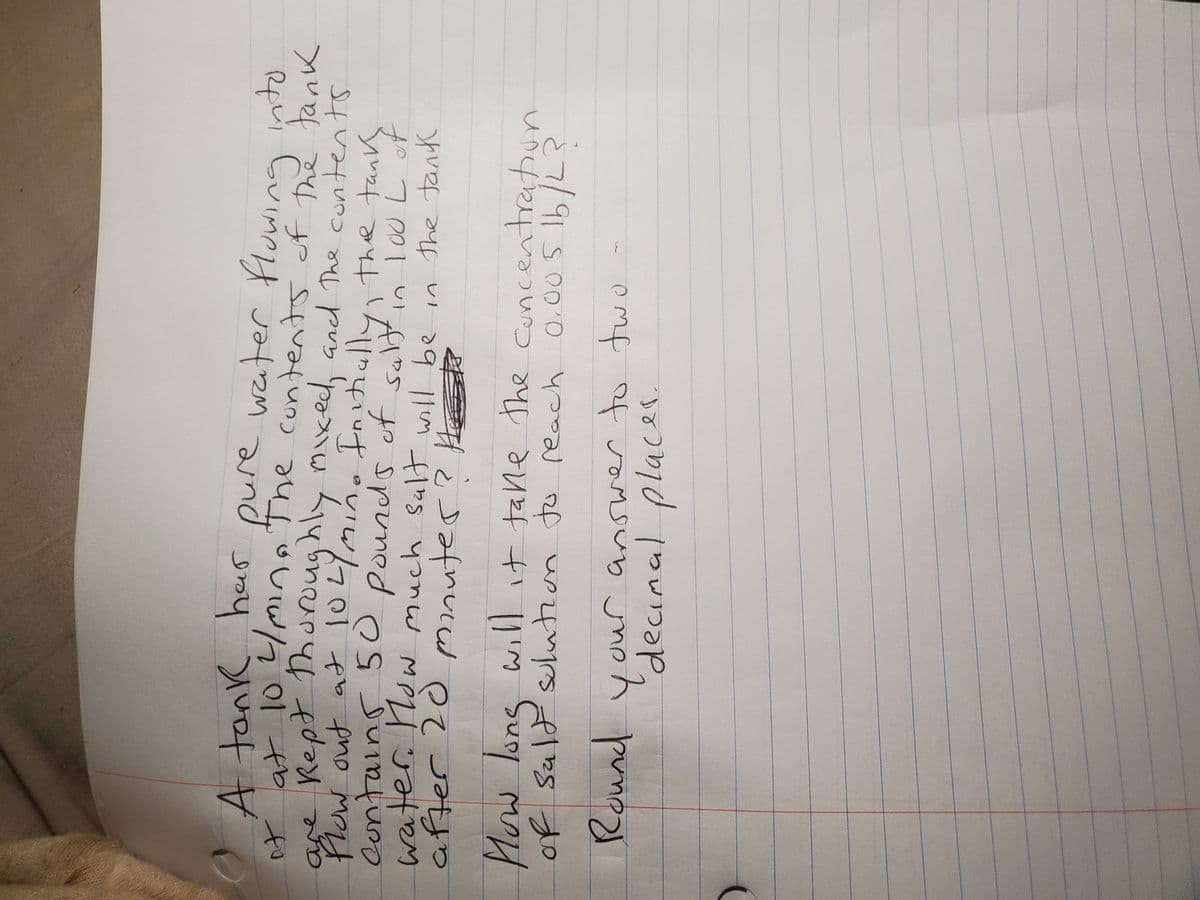 A tank has pure water flowing into
it at 10 L/min. The contents of the tank
are kept thoroughly mixed, and the contents
flow out at 10 L/min. Initially, the tank
contains 50 pounds of salt in 100 L of
water. How much salt will be in the tank
after 20 minutes?
How long will it take the concentration
of salt solution to reach 0.005 lb/L?
Round your answer to two
decimal places.